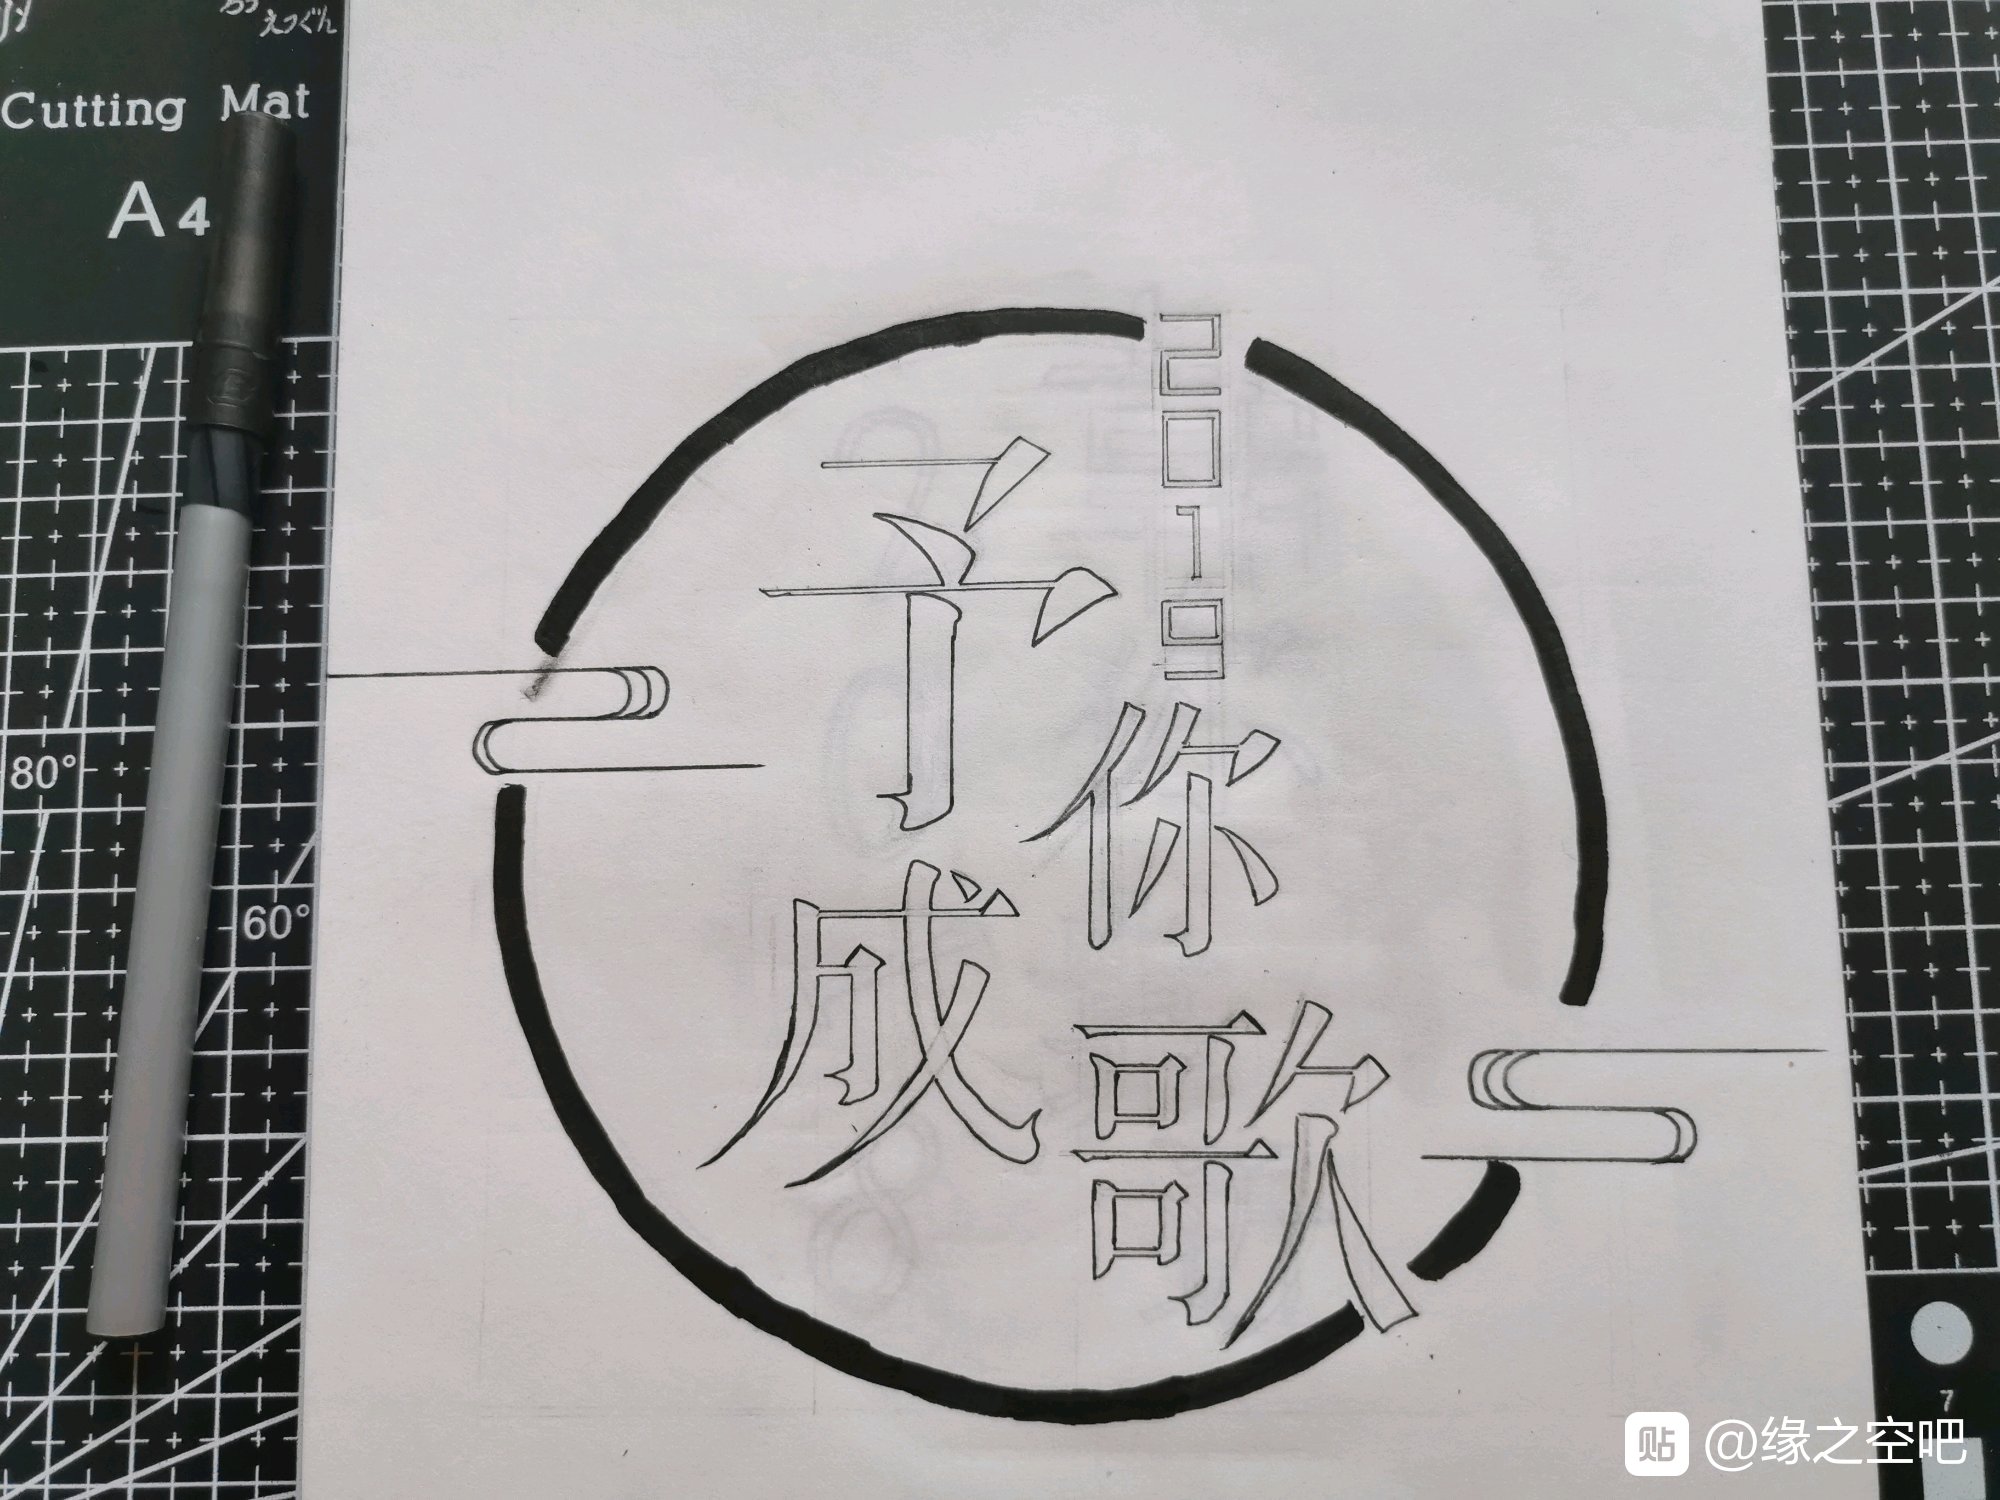 えつぐん
Cutting Mat
A4
80°
60°
2019
予你
成歌
7
贴 @缘之空吧